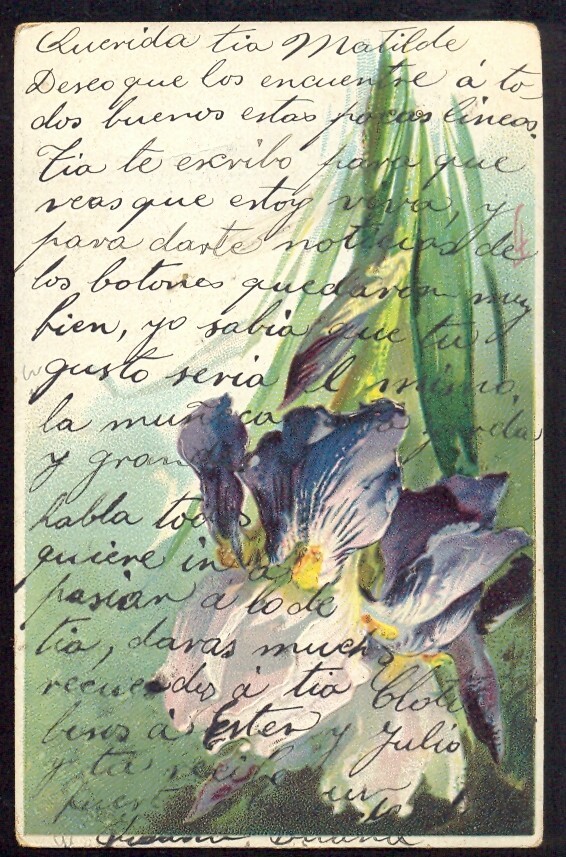 Querida tia Matilde
Deseo que los encuentre á to-
dos buenos estas pocas lineas.
Tia te escribo para que
veas que estoy viva, y
para darte noticias de
los botones quedaron muy
bien, yo sabia que tu
gusto seria el mismo,
la muñeca
y grande
habla todo
quiere ir á
pasiar a lo de
tia, daras muchos
recuerdos á tia Cloti
besos á Ester y Julio
y tu recibe un
fuerte